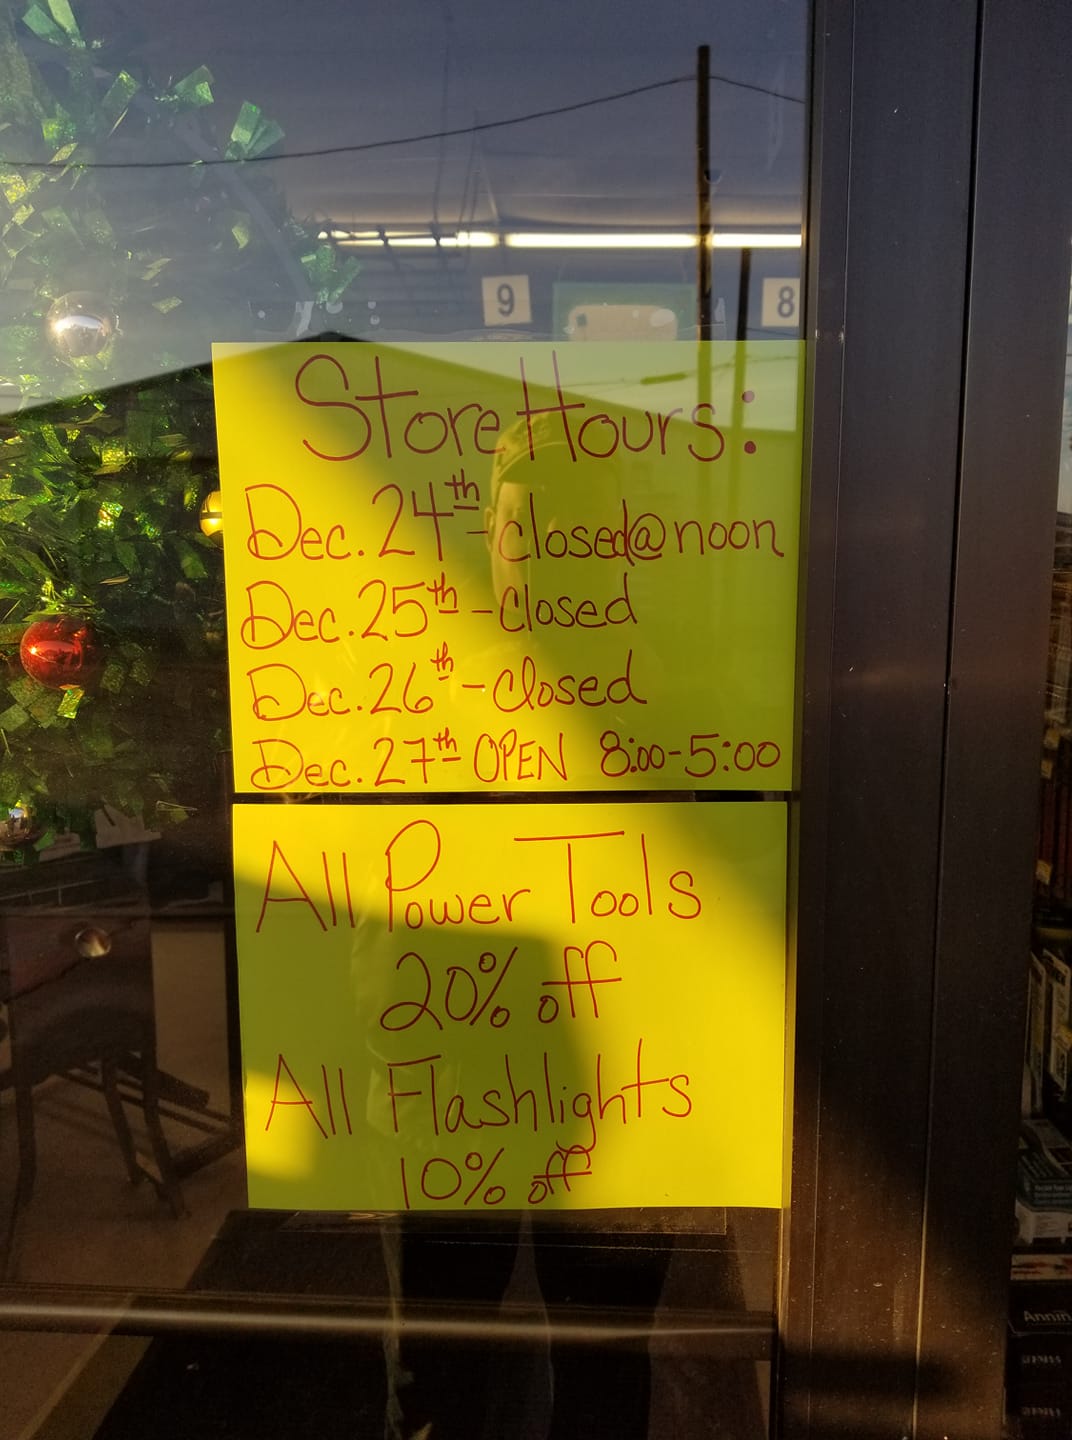 9
8
Store Hours:
Dec. 24th - closed@noon
Dec. 25th - closed
Dec. 26th - closed
Dec. 27th OPEN 8:00-5:00
All Power Tools
20% off
All Flashlights
10% off